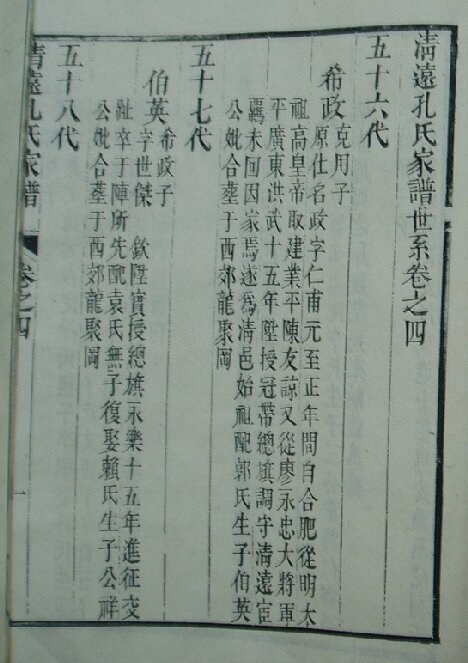 清遠孔氏家譜世系卷之四
五十六代
希政 克用子
原仕名政字仁甫元至正年間自合肥從明太
祖高皇帝取建業平陳友諒又從廖永忠大將軍
平廣東洪武十五年陞授冠帶總旗調守清遠宦
羈未回因家焉遂為清邑始祖配郭氏生子伯英
公妣合葬于西郊龍聚岡
五十七代
伯英 希政子
字世傑 欽陞實授總旗永樂十五年進征交
趾卒于陣所先配袁氏無子復娶賴氏生子公祥
公妣合葬于西郊龍聚岡
五十八代
清遠孔氏家譜 卷之四 一